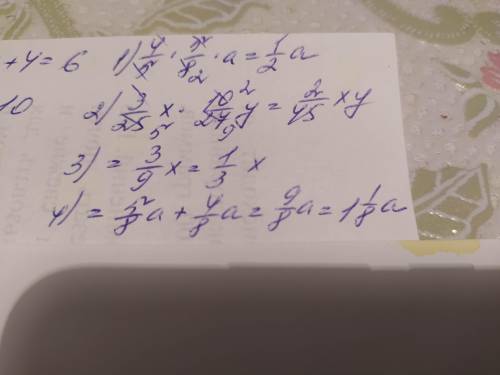 +4=6 1) 4/5 · 5/8 2 · a = 1/2 a
10 2) 3/25 5 x · 10 2/27 9 y = 2/45 xy
3) = 3/9 x = 1/3 x
4) = 5/8 a + 4/8 a = 9/8 a = 1 1/8 a